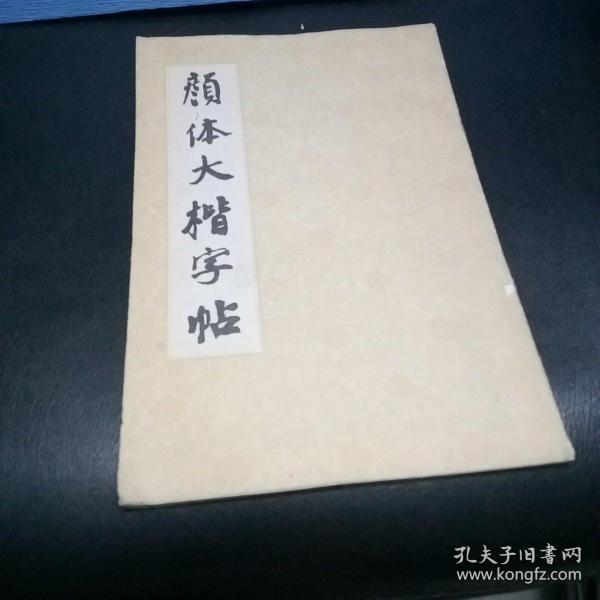 顏体大楷字帖
孔夫子旧書网
www.kongfz.com